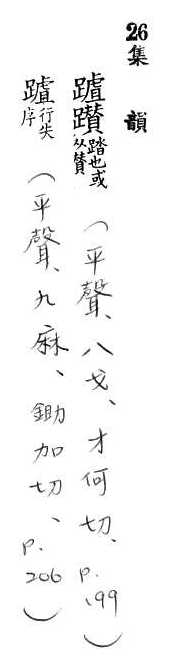 26集韻
䠡躦踏也或从贊（平聲、八戈、才何切、p.199）
䠡行失序（平聲、九麻、鋤加切、p.206）